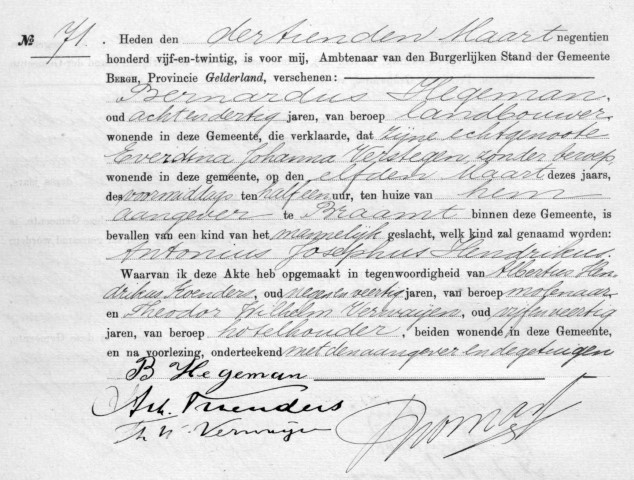 № 71. Heden den dertienden Maart negentien
honderd vijf-en-twintig, is voor mij, Ambtenaar van den Burgerlijken Stand der Gemeente
BERGH, Provincie Gelderland, verschenen:
Bernardus Hegeman,
oud achtendertig jaren, van beroep landbouwer,
wonende in deze Gemeente, die verklaarde, dat zijne echtgenoote
Everdina Johanna Verstegen, zonder beroep,
wonende in deze gemeente, op den elfden Maart dezes jaars,
des voormiddags ten half een uur, ten huize van hem
aangever te Braamt binnen deze Gemeente, is
bevallen van een kind van het mannelijk geslacht, welk kind zal genaamd worden:
Antonius Josephus Hendrikus.
Waarvan ik deze Akte heb opgemaakt in tegenwoordigheid van Albertus Hen-
drikus, oud negenenveertig jaren, van beroep molenaar
en Theodor Wilhelm Verwaijen, oud vijfenveertig
jaren, van beroep hotelhouder, beiden wonende in deze Gemeente,
en na voorlezing, onderteekend met den aangever en de getuigen
B Hegeman
Th W. Verwaijen